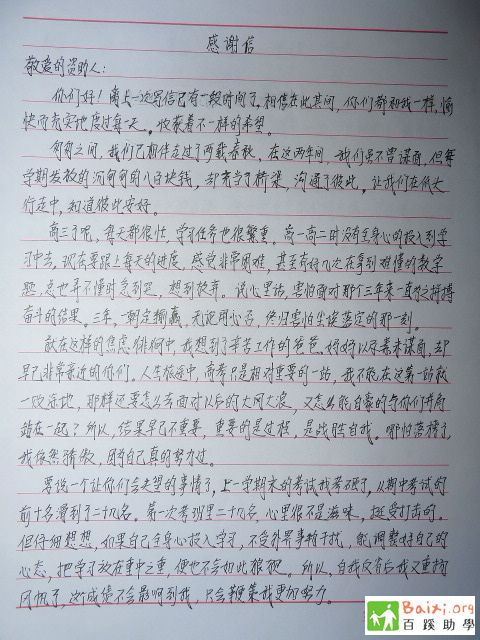 感谢信
敬爱的资助人:
你们好!离上一次写信已有一段时间了。相信在此其间,你们都和我一样,愉
快而充实地度过每一天。收获着不一样的希望。
匆匆之间,我们已相伴走过了两载春秋。在这两年间,我们虽不曾谋面,但每
学期发放的沉甸甸的八百块钱,却架了桥梁,沟通了彼此。让我们在低头
行走中,知道彼此安好。
高三了呢,每天都很忙,学习任务也很繁重。高一高二时没有全身心的投入到学
习中去,现在要跟上每天的进度,感觉非常困难,甚至有好几次在拿到难懂的数学
题,怎也弄不懂时急到哭,想到放弃。说心里话,害怕面对那个三年来一直为之拼搏
奋斗的结果。三年,一刻定输赢,无论用心否,终归害怕尘埃落定的那一刻。
就在这样的焦虑徘徊中,我想到了辛苦工作的爸爸妈妈以及素未谋面,却
早已非常亲近的你们。人生旅途中,高考只是相对重要的一站,我不能在这第一站就
一败涂地,那样还要怎么去面对以后的大风大浪,又怎么能自豪的与你们并肩
站在一起?所以,结果早已不重要,重要的是过程,是战胜自我。哪怕落榜了,
我依然骄傲,因为自己真的努力过。
要说一个让你们会失望的事情了,上一学期末的考试我考砸了,从期中考试的
前十名滑到了二十几名。第一次考到班里二十几名,心里很不是滋味,挺受打击的。
但仔细想想,如果自己全身心投入学习,不受外界事物干扰,能调整好自己的
心态,把学习放在重中之重,便也不会如此狼狈。所以,自我反省后我又重扬
风帆了,这次成绩不会影响到我,只会鞭策我更加努力。
Baixi.org
百蹊助學